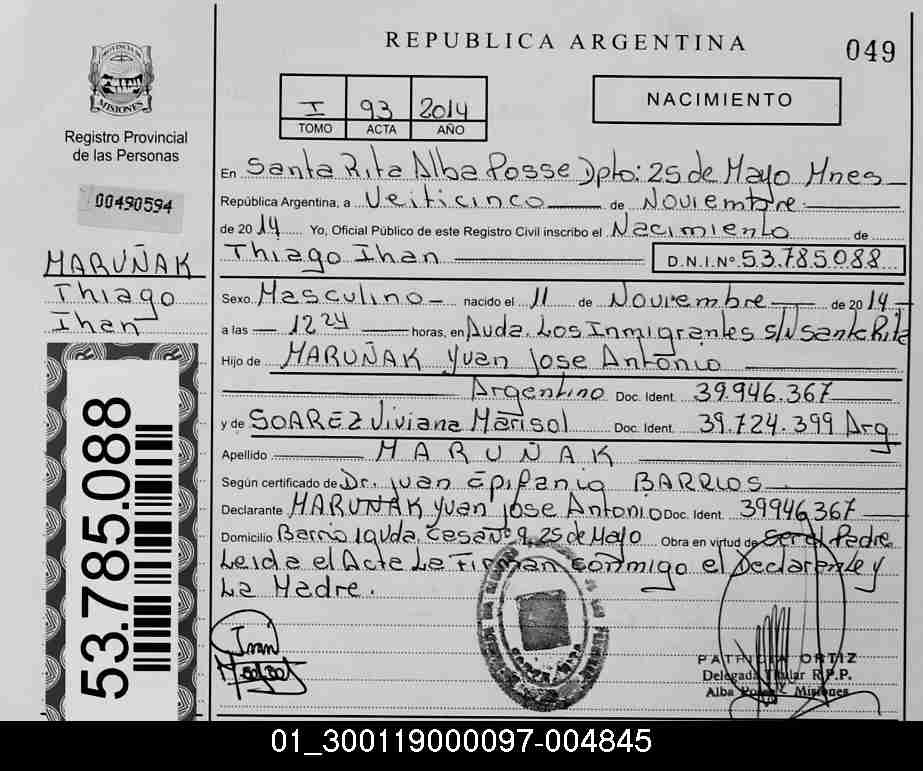 REPUBLICA ARGENTINA
049
PROVINCIA DE
MISIONES
Registro Provincial
de las Personas
00490594
I 93 2014
TOMO ACTA AÑO
NACIMIENTO
En Santa Rita Alba Posse Dpto: 25 de Mayo Mnes
República Argentina, a Veiticinco de Noviembre
de 2014 Yo, Oficial Público de este Registro Civil inscribo el Nacimiento de
Thiago Ihan D.N.I.Nº 53.785.088
MARUÑAK
Thiago
Ihan
Sexo Masculino nacido el 11 de Noviembre de 2014
a las 12 24 horas, en Avda. Los Inmigrantes s/N Santa Rita
Hijo de MARUÑAK Yvan Jose Antonio
Argentino Doc. Ident. 39.946.367
y de SOAREZ Viviana Marisol Doc. Ident. 39.724.399 Arg
Apellido MARUÑAK
Según certificado de Dr. Juan Epifanio BARRIOS
Declarante MARUÑAK Yvan Jose Antonio Doc. Ident. 39946367
Domicilio Barrio Iguda, Casa Nº 9, 25 de Mayo Obra en virtud de Ser el Padre
Leida el Acta La Firman conmigo el Declarante y
La Madre.
53.785.088
PATRICIA ORTIZ
Delegada Titular R.P.P.
Alba Posse - Misiones
01_300119000097-004845